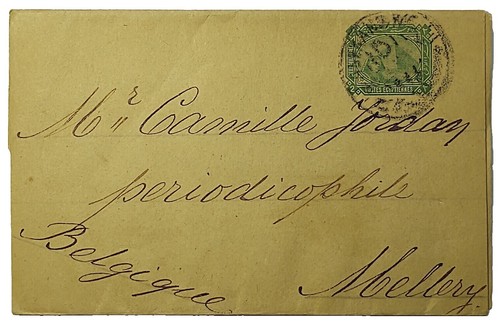 Mr Camille Jordan
periodicophile
Belgique
Mellery